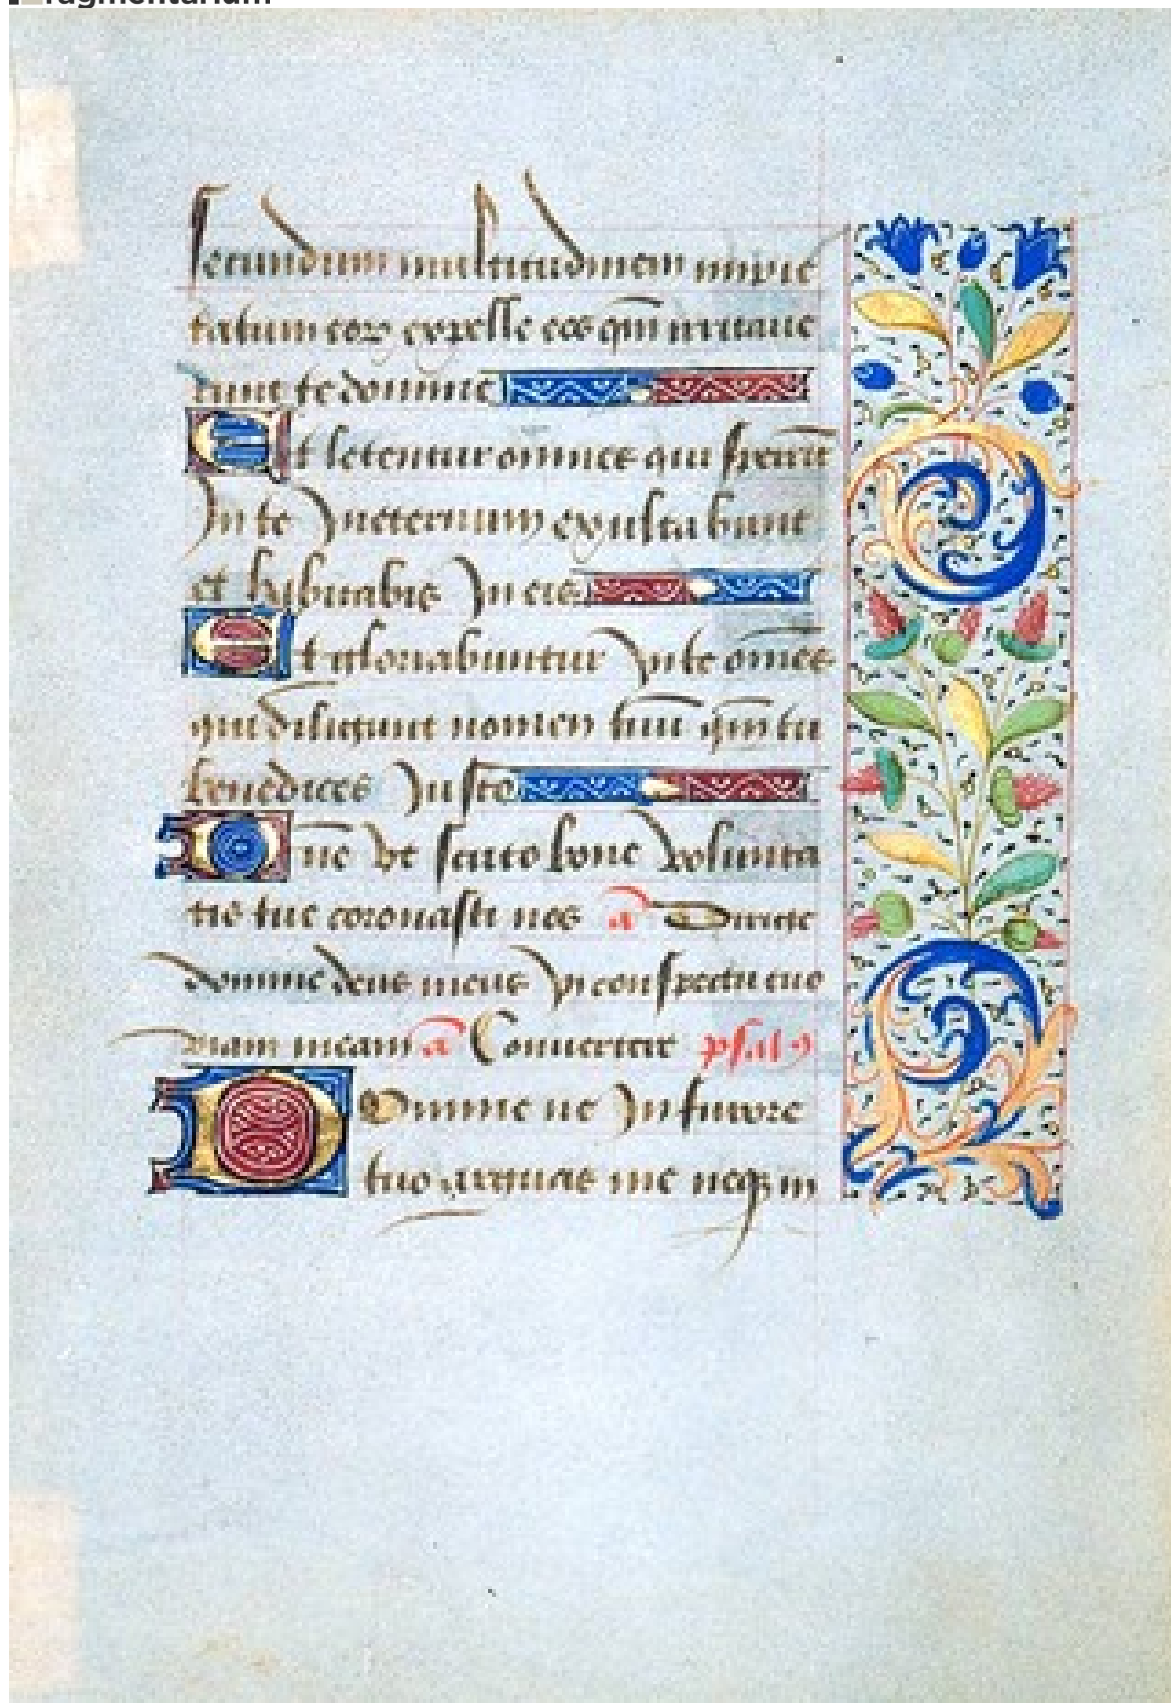 ragmentarium
secundum multitudinem impie
tatum eoꝝ expelle eos qm̄ irritaue
runt te domine
Et letentur omnes qui sperāt
In te Ineternum exultabunt
et habitabis In eis
Et gloriabuntur Inte om̄es
qui diligunt nomen tuū qm̄ tu
benedices Iusto
Dn̄e vt scuto bone volunta
tis tue coronasti nos a᷃ Dirige
domine deus meus In conspectu tuo
viam meam a᷃ Conuertere psalꝰ
Domine ne In furore
tuo arguas me neqꝫ in